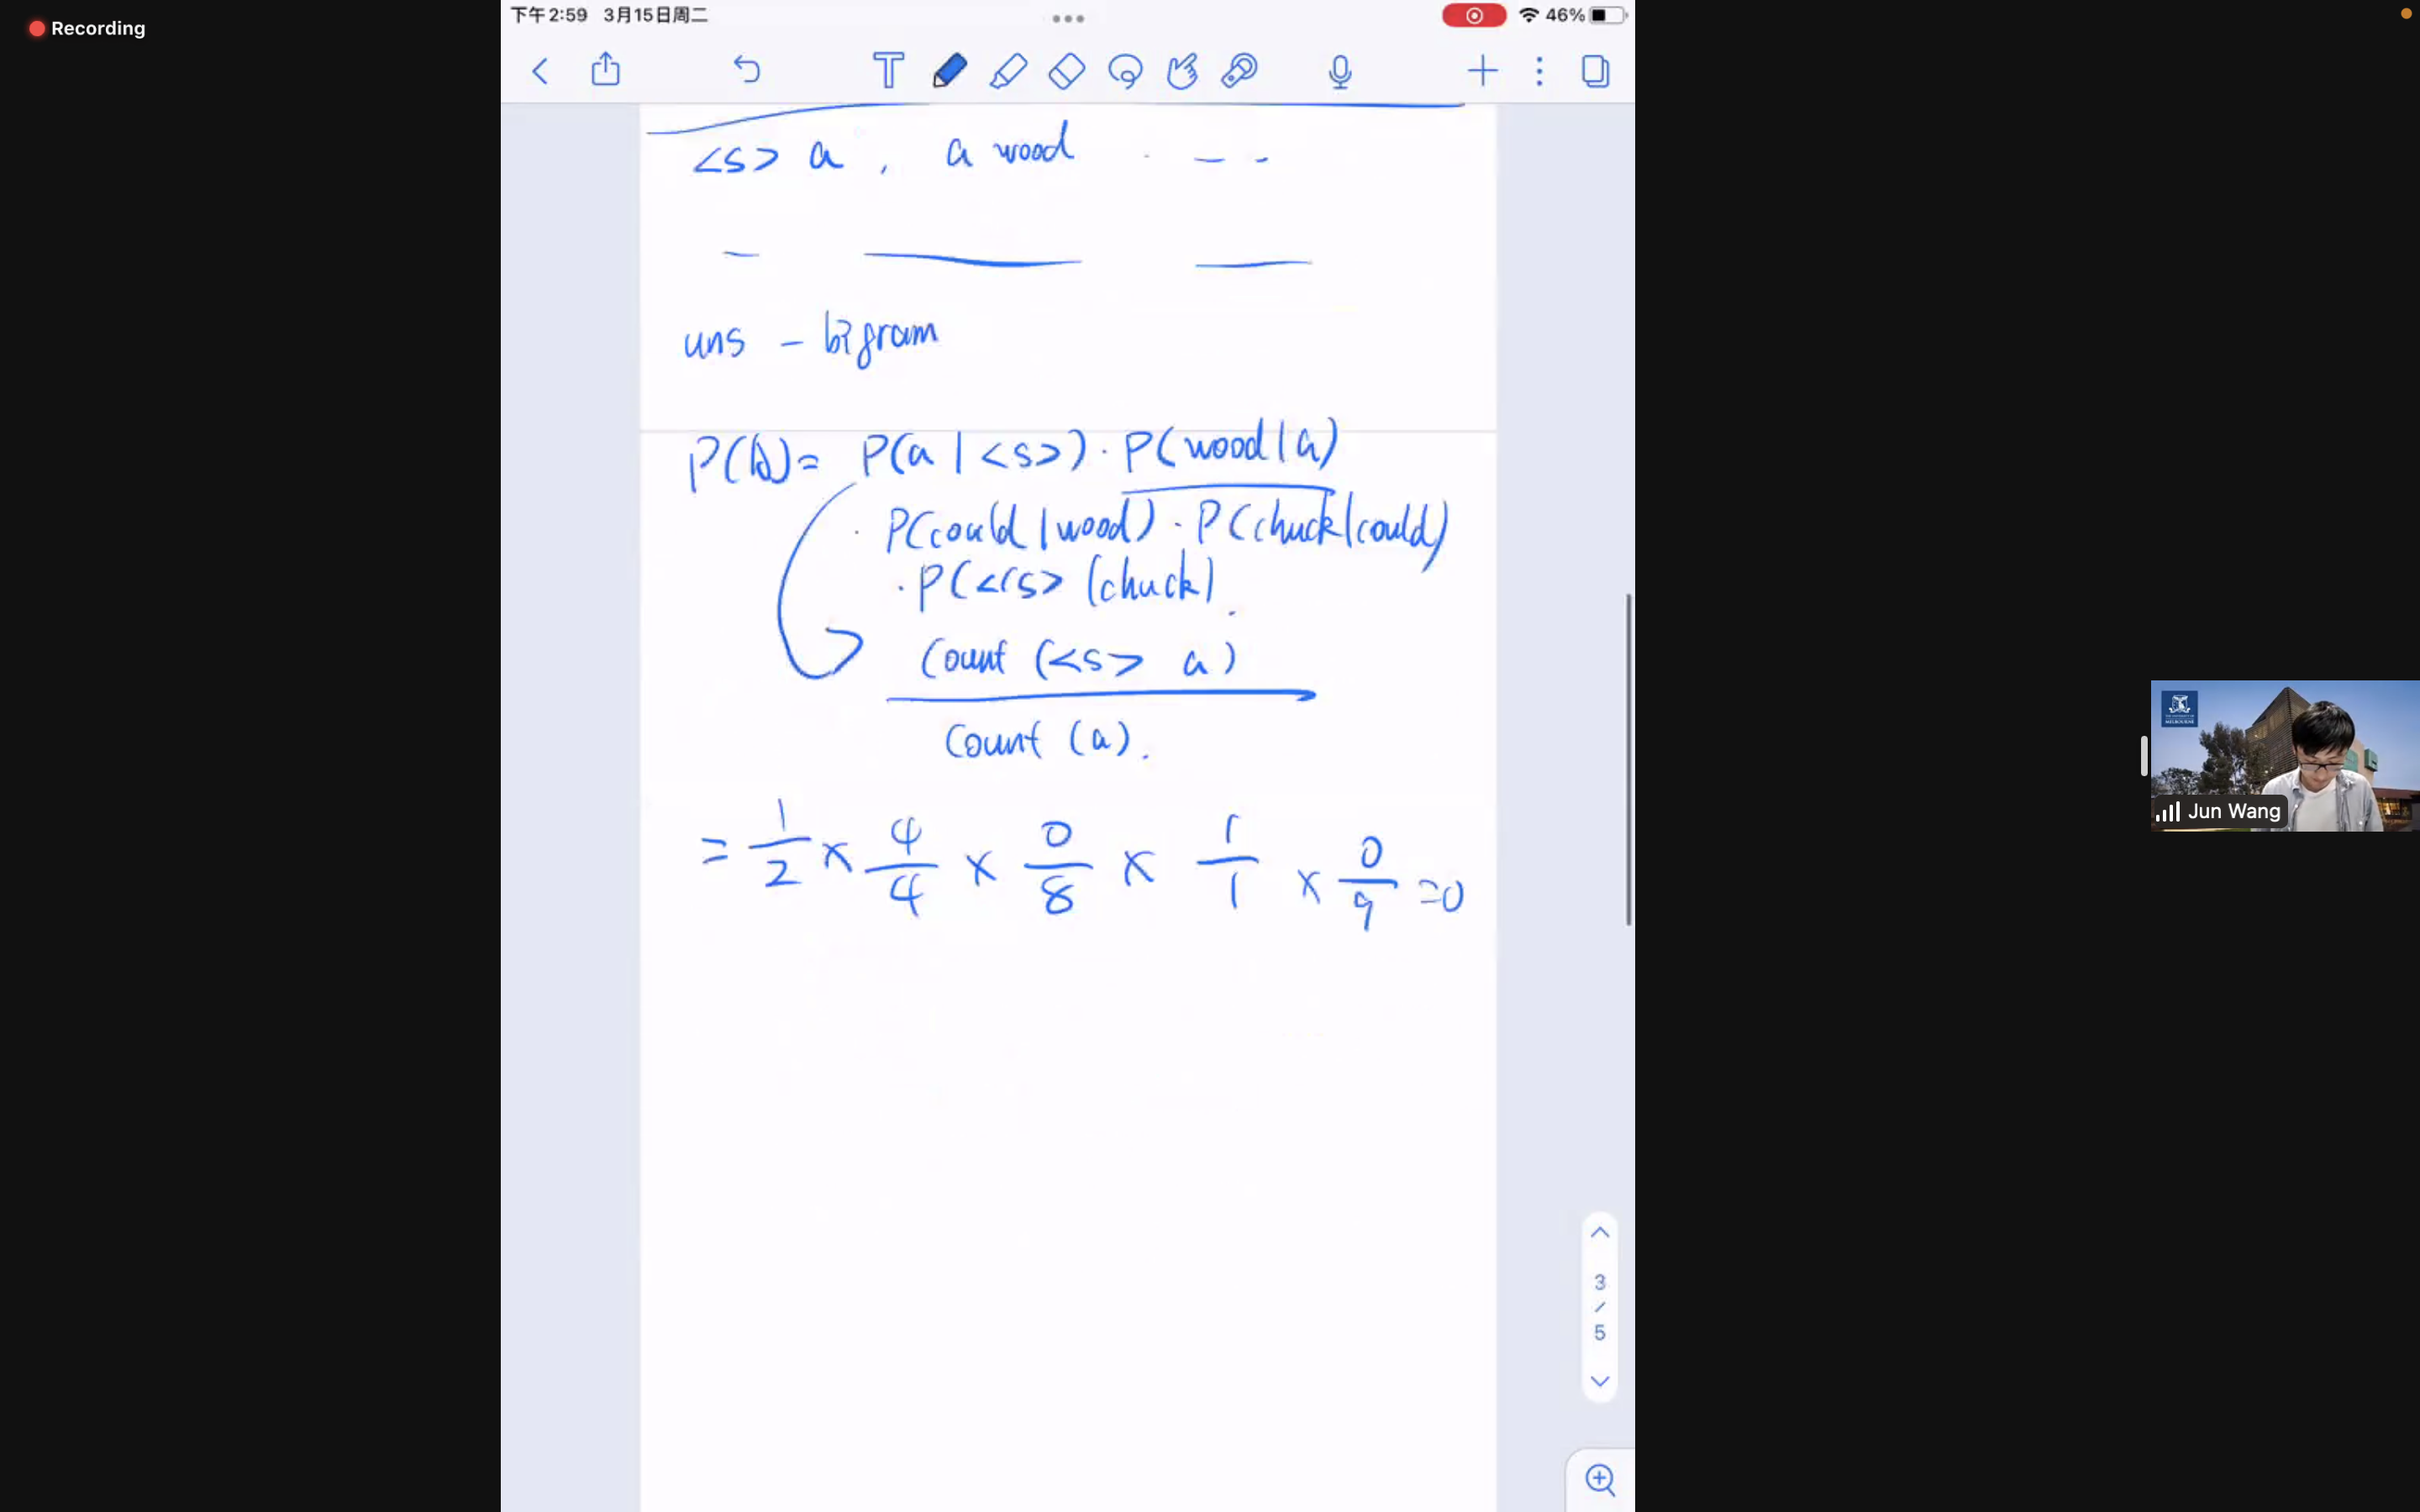 Recording
下午2:59 3月15日周二
46%
T
<s> a , a wood . - -
uns - bigram
P(A) = P(a | <s>) · P(wood | a)
· P(could | wood) · P(chuck | could)
· P(</s> | chuck) .
Count (<s> a)
Count (a) .
= 1/2 × 4/4 × 0/8 × 1/1 × 0/9 = 0
3
/
5
MELBOURNE
Jun Wang